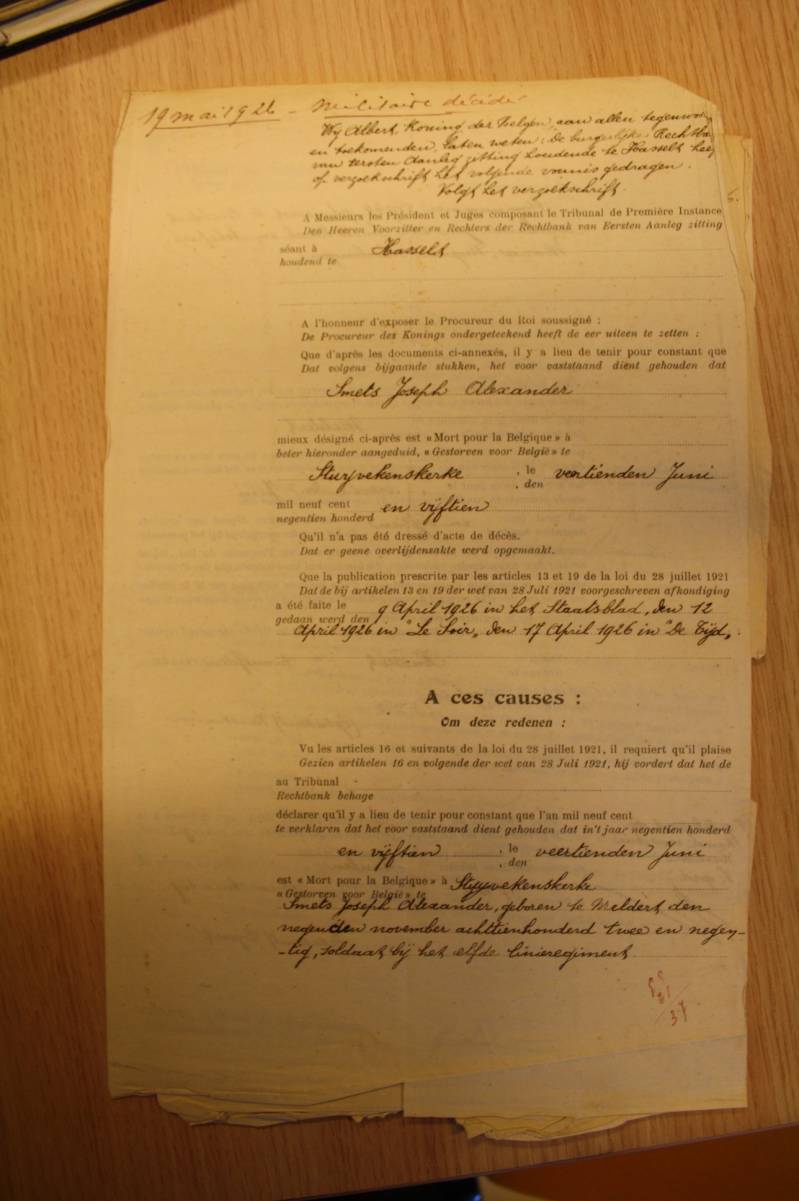 19 mai 1926 - Militaire décédé
Wij Albert, Koning der Belgen, aan allen tegenwoordig
en toekomenden, laten weten: De burgerlijke Rechtba
van eersten Aanleg zitting houdende te Hasselt heef
op verzoekschrift het volgende vonnis gedragen.
Volgt het verzoekschrift.
A Messieurs les Président et Juges composant le Tribunal de Première Instance
Den Heeren Voorzitter en Rechters der Rechtbank van Eersten Aanleg zitting
séant à
houdend te
Hasselt
A l'honneur d'exposer le Procureur du Roi soussigné :
De Procureur des Konings ondergeteekend heeft de eer uiteen te zetten :
Que d'après les documents ci-annexés, il y a lieu de tenir pour constant que
Dat volgens bijgaande stukken, het voor vaststaand dient gehouden dat
Smets Joseph Alexander
mieux désigné ci-après est « Mort pour la Belgique » à
beter hieronder aangeduid, « Gestorven voor België » te
Stuyvekenskerke , le veertienden Juni
, den
mil neuf cent
negentien honderd
en vijftien
Qu'il n'a pas été dressé d'acte de décès.
Dat er geene overlijdensakte werd opgemaakt.
Que la publication prescrite par les articles 13 et 19 de la loi du 28 juillet 1921
Dat de bij artikelen 13 en 19 der wet van 28 Juli 1921 voorgeschreven afkondiging
a été faite le
gedaan werd den
9 April 1926 in het Staatsblad, den 12
April 1926 in "Le Soir", den 17 April 1926 in "De Tijd".
A ces causes :
Om deze redenen :
Vu les articles 16 et suivants de la loi du 28 juillet 1921, il requiert qu'il plaise
Gezien artikelen 16 en volgende der wet van 28 Juli 1921, hij vordert dat het de
au Tribunal
Rechtbank behage
déclarer qu'il y a lieu de tenir pour constant que l'an mil neuf cent
te verklaren dat het voor vaststaand dient gehouden dat in't jaar negentien honderd
en vijftien , le veertienden Juni
, den
est « Mort pour la Belgique » à Stuyvekenskerke
« Gestorven voor België » te
Smets Joseph Alexander, geboren te Meldert den
negenden november achttienhonderd twee en negen-
-tig, soldaat bij het elfde linieregiment